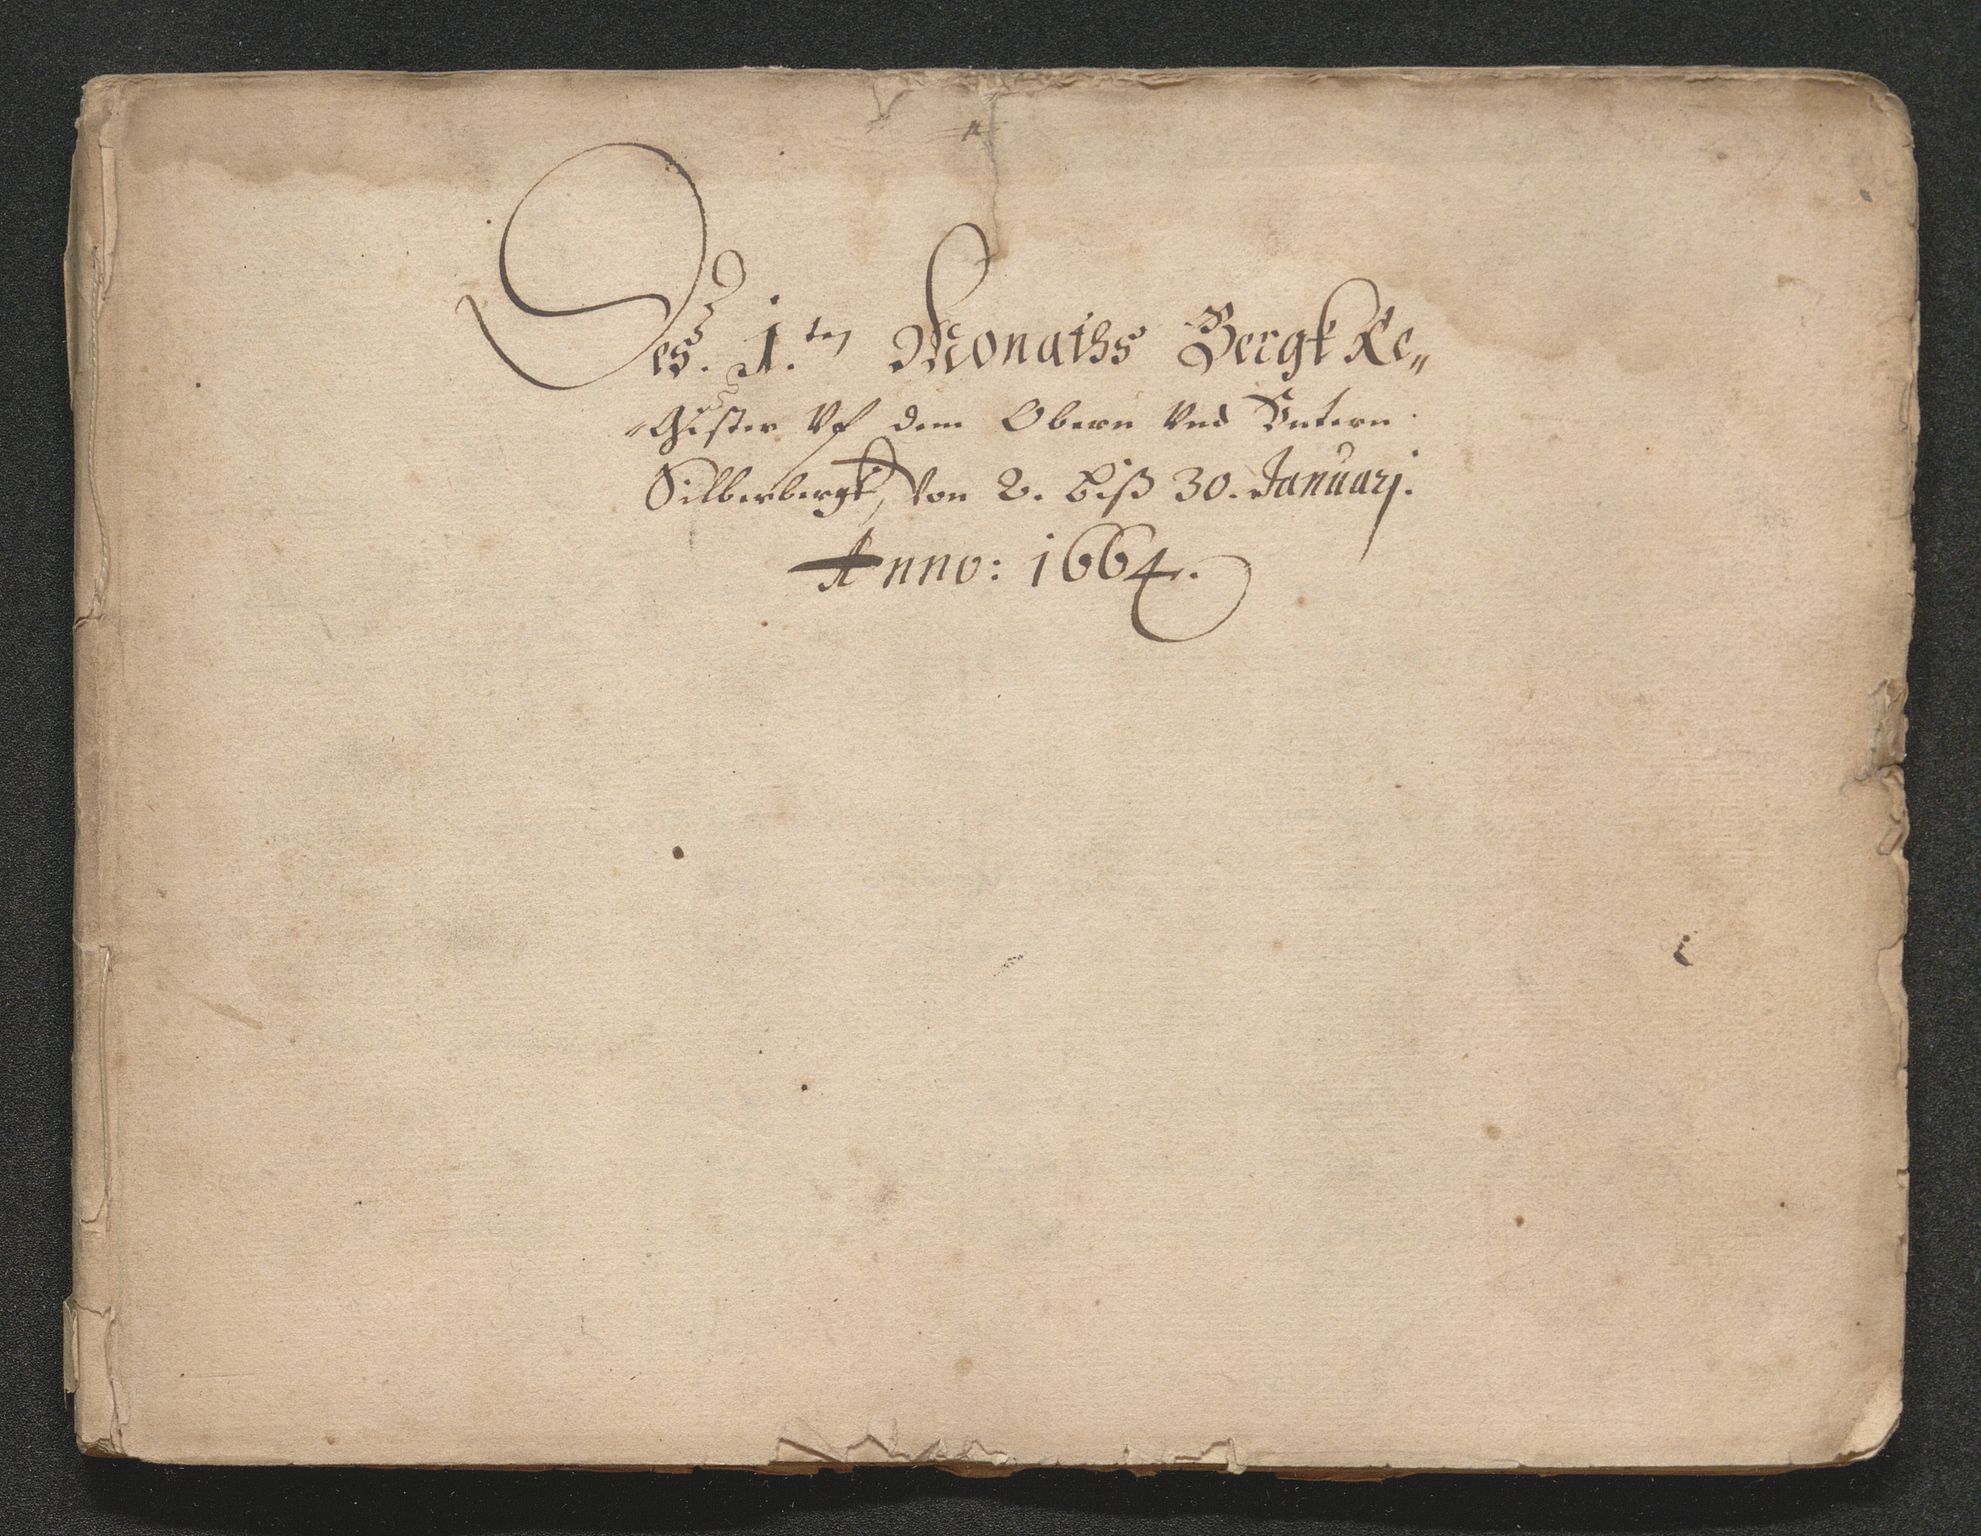 Des. 1.ten Monaths Bergk Re„
gister Vf dem Obern Vnd Untern
Silberbergk, Von 2. biß 30. Januarj.
Anno: 1664.